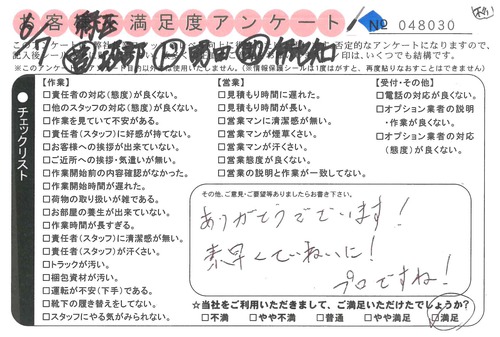 お客様満足度アンケート
№ 048030
【作業】
□責任者の対応(態度)が良くない。
□他のスタッフの対応(態度)が良くない。
□作業を見ていて不安がある。
□責任者(スタッフ)に好感が持てない。
□お客様への挨拶が出来ていない。
□ご近所への挨拶・気遣いが無い。
□作業開始前の内容確認がなかった。
□作業開始時間が遅れた。
□荷物の取り扱いが雑である。
□お部屋の養生が出来ていない。
□作業時間が長すぎる。
□責任者(スタッフ)に清潔感が無い。
□責任者(スタッフ)が汗くさい。
□トラックが汚い。
□梱包資材が汚い。
□運転が不安(下手)である。
□靴下の履き替えをしてない。
□スタッフにやる気がみられない。
【営業】
□見積もり時間に遅れた。
□見積もり時間が長い。
□営業マンに清潔感が無い。
□営業マンが煙草くさい。
□営業マンが汗くさい。
□営業態度が良くない。
□営業の説明と作業が一致してない。
【受付・その他】
□電話の対応が良くない。
□オプション業者の説明
・作業が良くない。
□オプション業者の対応
(態度)が良くない。
チェックリスト
その他、ご意見・ご要望等ありましたらお書き下さい。
ありがとうでざいます!
素早くていねいに!
プロですね!
☆当社をご利用いただきまして、ご満足いただけたでしょうか?
□不満 □やや不満 □普通 □やや満足 □満足